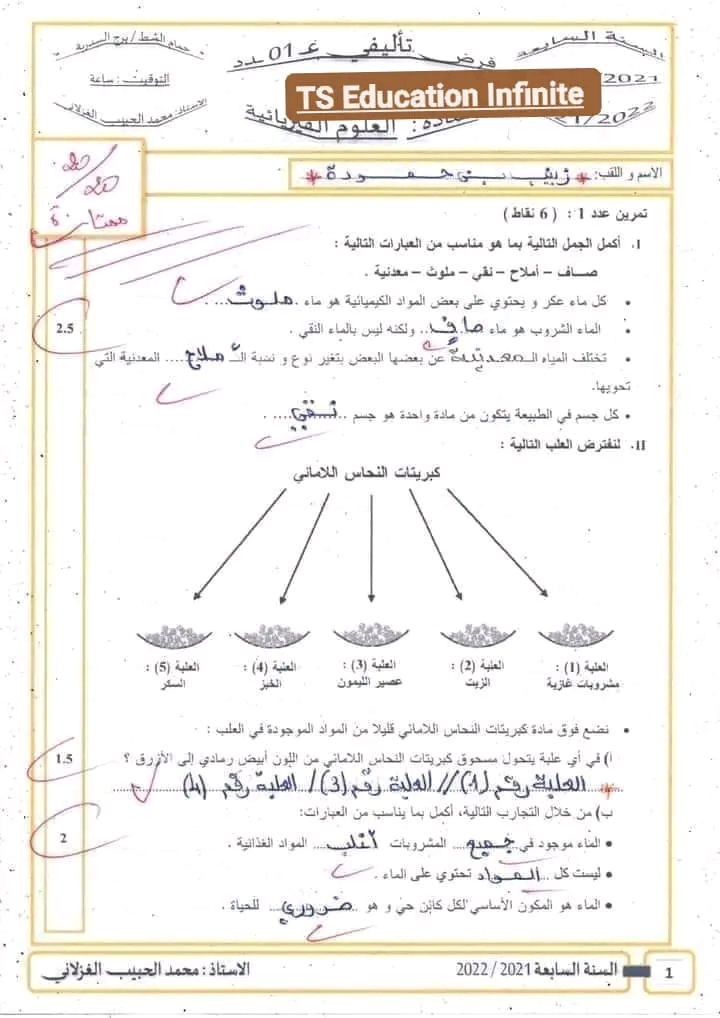 السنة السابعة
فرض تأليفي عـ01ـدد
حمام الشط / برج السدرية
2021
التوقيت : ساعة
TS Education Infinite
2022
مادة : العلوم الفيزيائية
الاستاذ: محمد الحبيب الغزلاني
الاسم و اللقب: * زينب بني حمودة *
20/20
ممتازة
تمرين عدد 1 : ( 6 نقاط )
I. أكمل الجمل التالية بما هو مناسب من العبارات التالية :
صاف – أملاح – نقي – ملوث – معدنية .
• كل ماء عكر و يحتوي على بعض المواد الكيميائية هو ماء . ملوث... .
2.5
• الماء الشروب هو ماء .صافٍ.. ولكنه ليس بالماء النقي .
• تختلف المياه الـمعدنية عن بعضها البعض بتغير نوع و نسبة الأملاح.... المعدنية التي
تحويها.
• كل جسم في الطبيعة يتكون من مادة واحدة هو جسم ..نقي.... .
II. لنفترض العلب التالية :
كبريتات النحاس اللامائي
العلبة (1) : العلبة (2) : العلبة (3) : العلبة (4) : العلبة (5) :
مشروبات غازية الزيت عصير الليمون الخبز السكر
• نضع فوق مادة كبريتات النحاس اللامائي قليلا من المواد الموجودة في العلب :
1.5
أ) في أي علبة يتحول مسحوق كبريتات النحاس اللامائي من اللون أبيض رمادي إلى الأزرق ؟
* العلبة رقم (1) // العلبة رقم (3) / العلبة رقم (4)
ب) من خلال التجارب التالية، أكمل بما يناسب من العبارات:
2
• الماء موجود في جميع.... المشروبات أغلب.... المواد الغذائية .
• ليست كل ...المواد تحتوي على الماء .
• الماء هو المكون الأساسي لكل كائن حي و هو ..ضروري... للحياة .
1
السنة السابعة 2021 / 2022
الاستاذ : محمد الحبيب الغزلاني